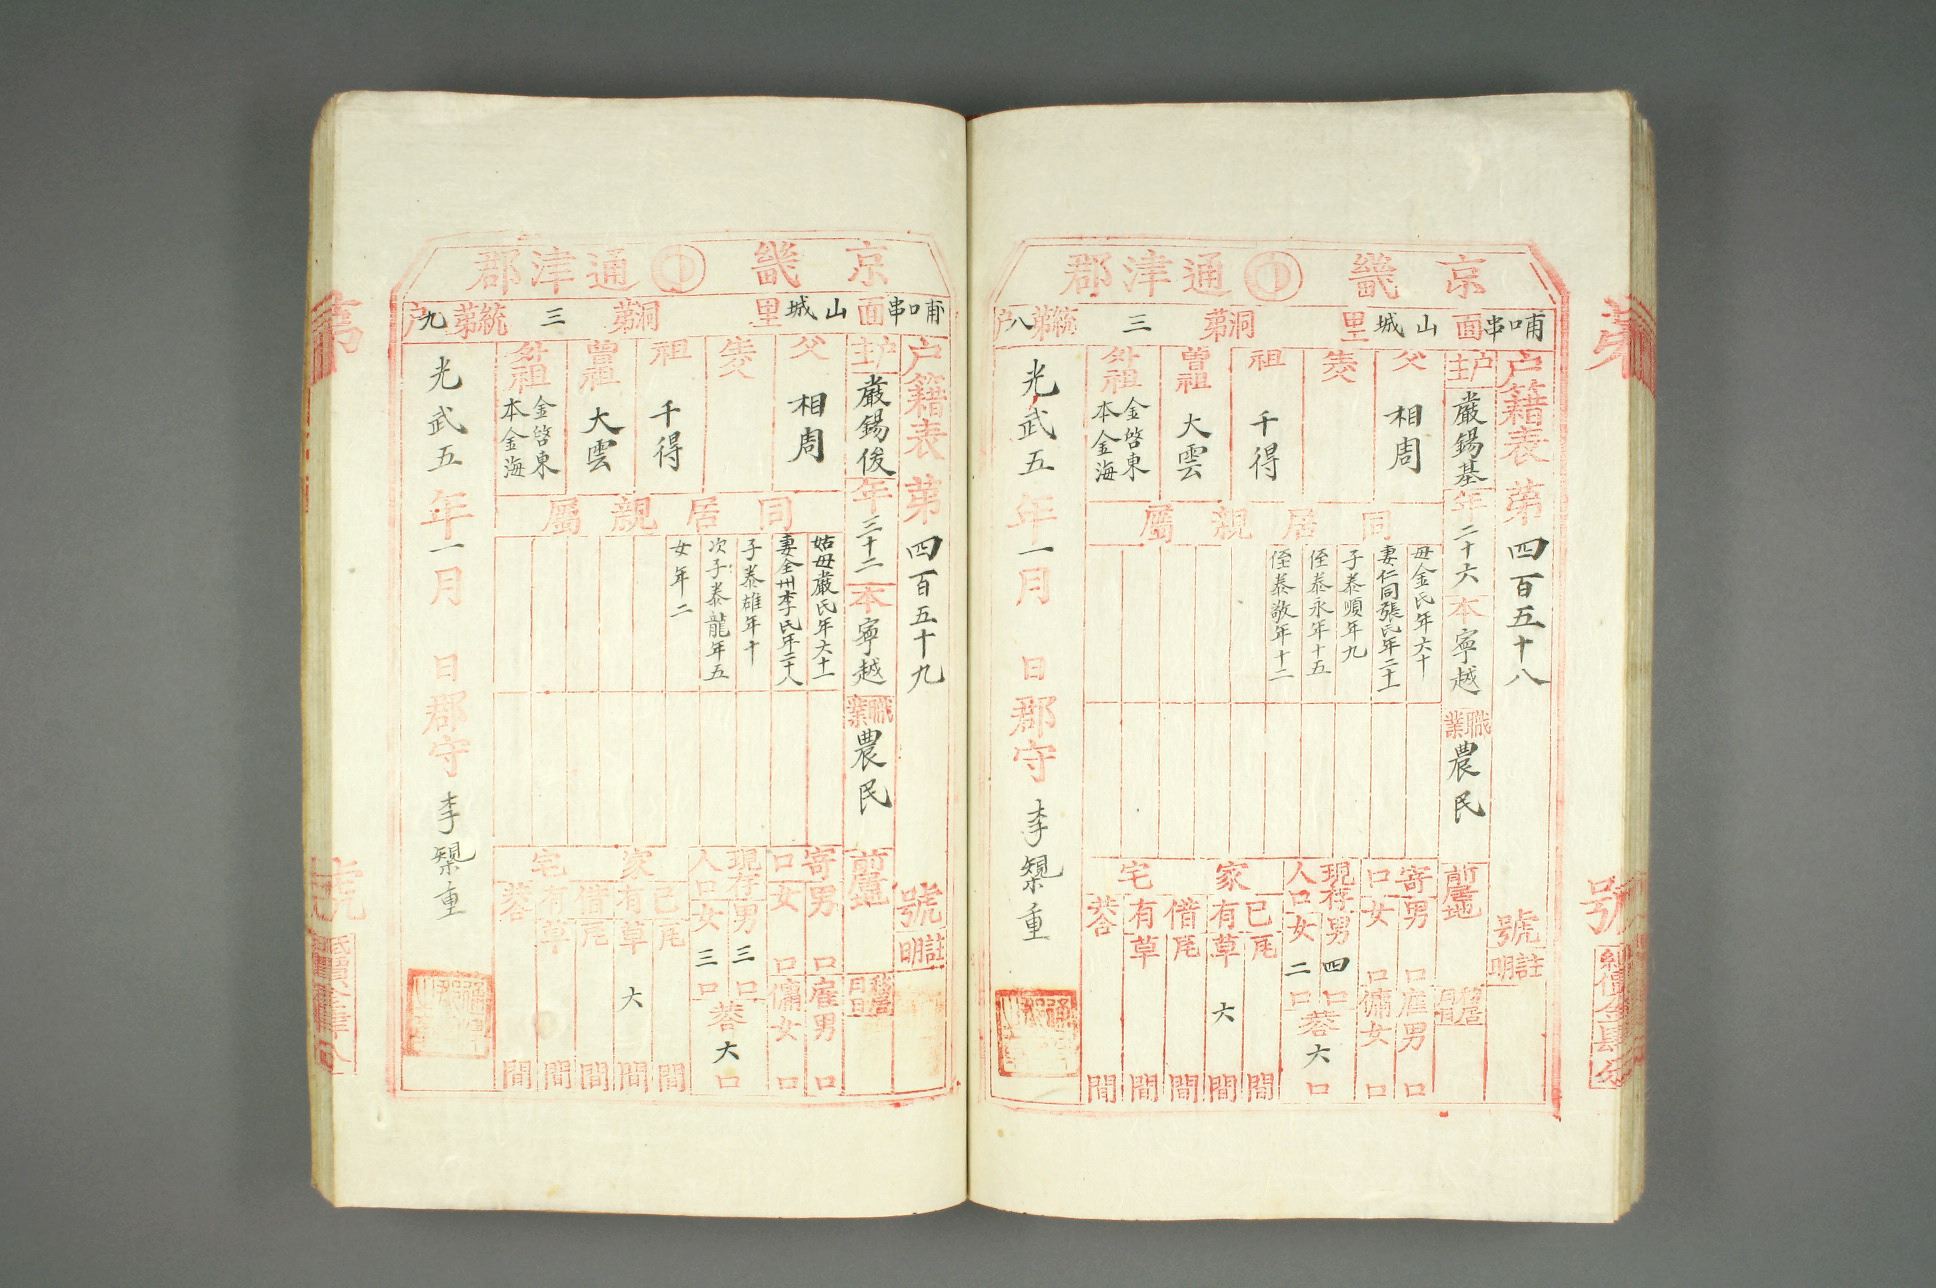 京畿 通津郡
哺口串面 山城里 洞第 三 統第八戶
戶籍表 第四百五十八 號 註明
戶主 嚴錫基 年二十六 本 寧越 職業 農民 前居地 移居月日
父 相周
生父
祖 千得
曾祖 大雲
外祖 金啓東 本金海
同居親屬
母金氏年六十
妻仁同張氏年二十一
子泰順年九
侄泰永年十五
侄泰敬年十二
寄口 男 口 女 口 雇男 口 傭女 口
現存人口 男四口 女二口 蓉六口
家宅 己有 瓦 間 草六間 借有 瓦 間 草 間 蓉 間
光武五年一月 日 郡守 李㮨重
京畿 通津郡
哺口串面 山城里 洞第 三 統第九戶
戶籍表 第四百五十九 號 註明
戶主 嚴錫俊 年三十二 本 寧越 職業 農民 前居地 移居月日
父 相周
生父
祖 千得
曾祖 大雲
外祖 金啓東 本金海
同居親屬
姑母嚴氏年六十一
妻全州李氏年二十八
子泰雄年十
次子泰龍年五
女年二
寄口 男 口 女 口 雇男 口 傭女 口
現存人口 男三口 女三口 蓉六口
家宅 己有 瓦 間 草六間 借有 瓦 間 草 間 蓉 間
光武五年一月 日 郡守 李㮨重